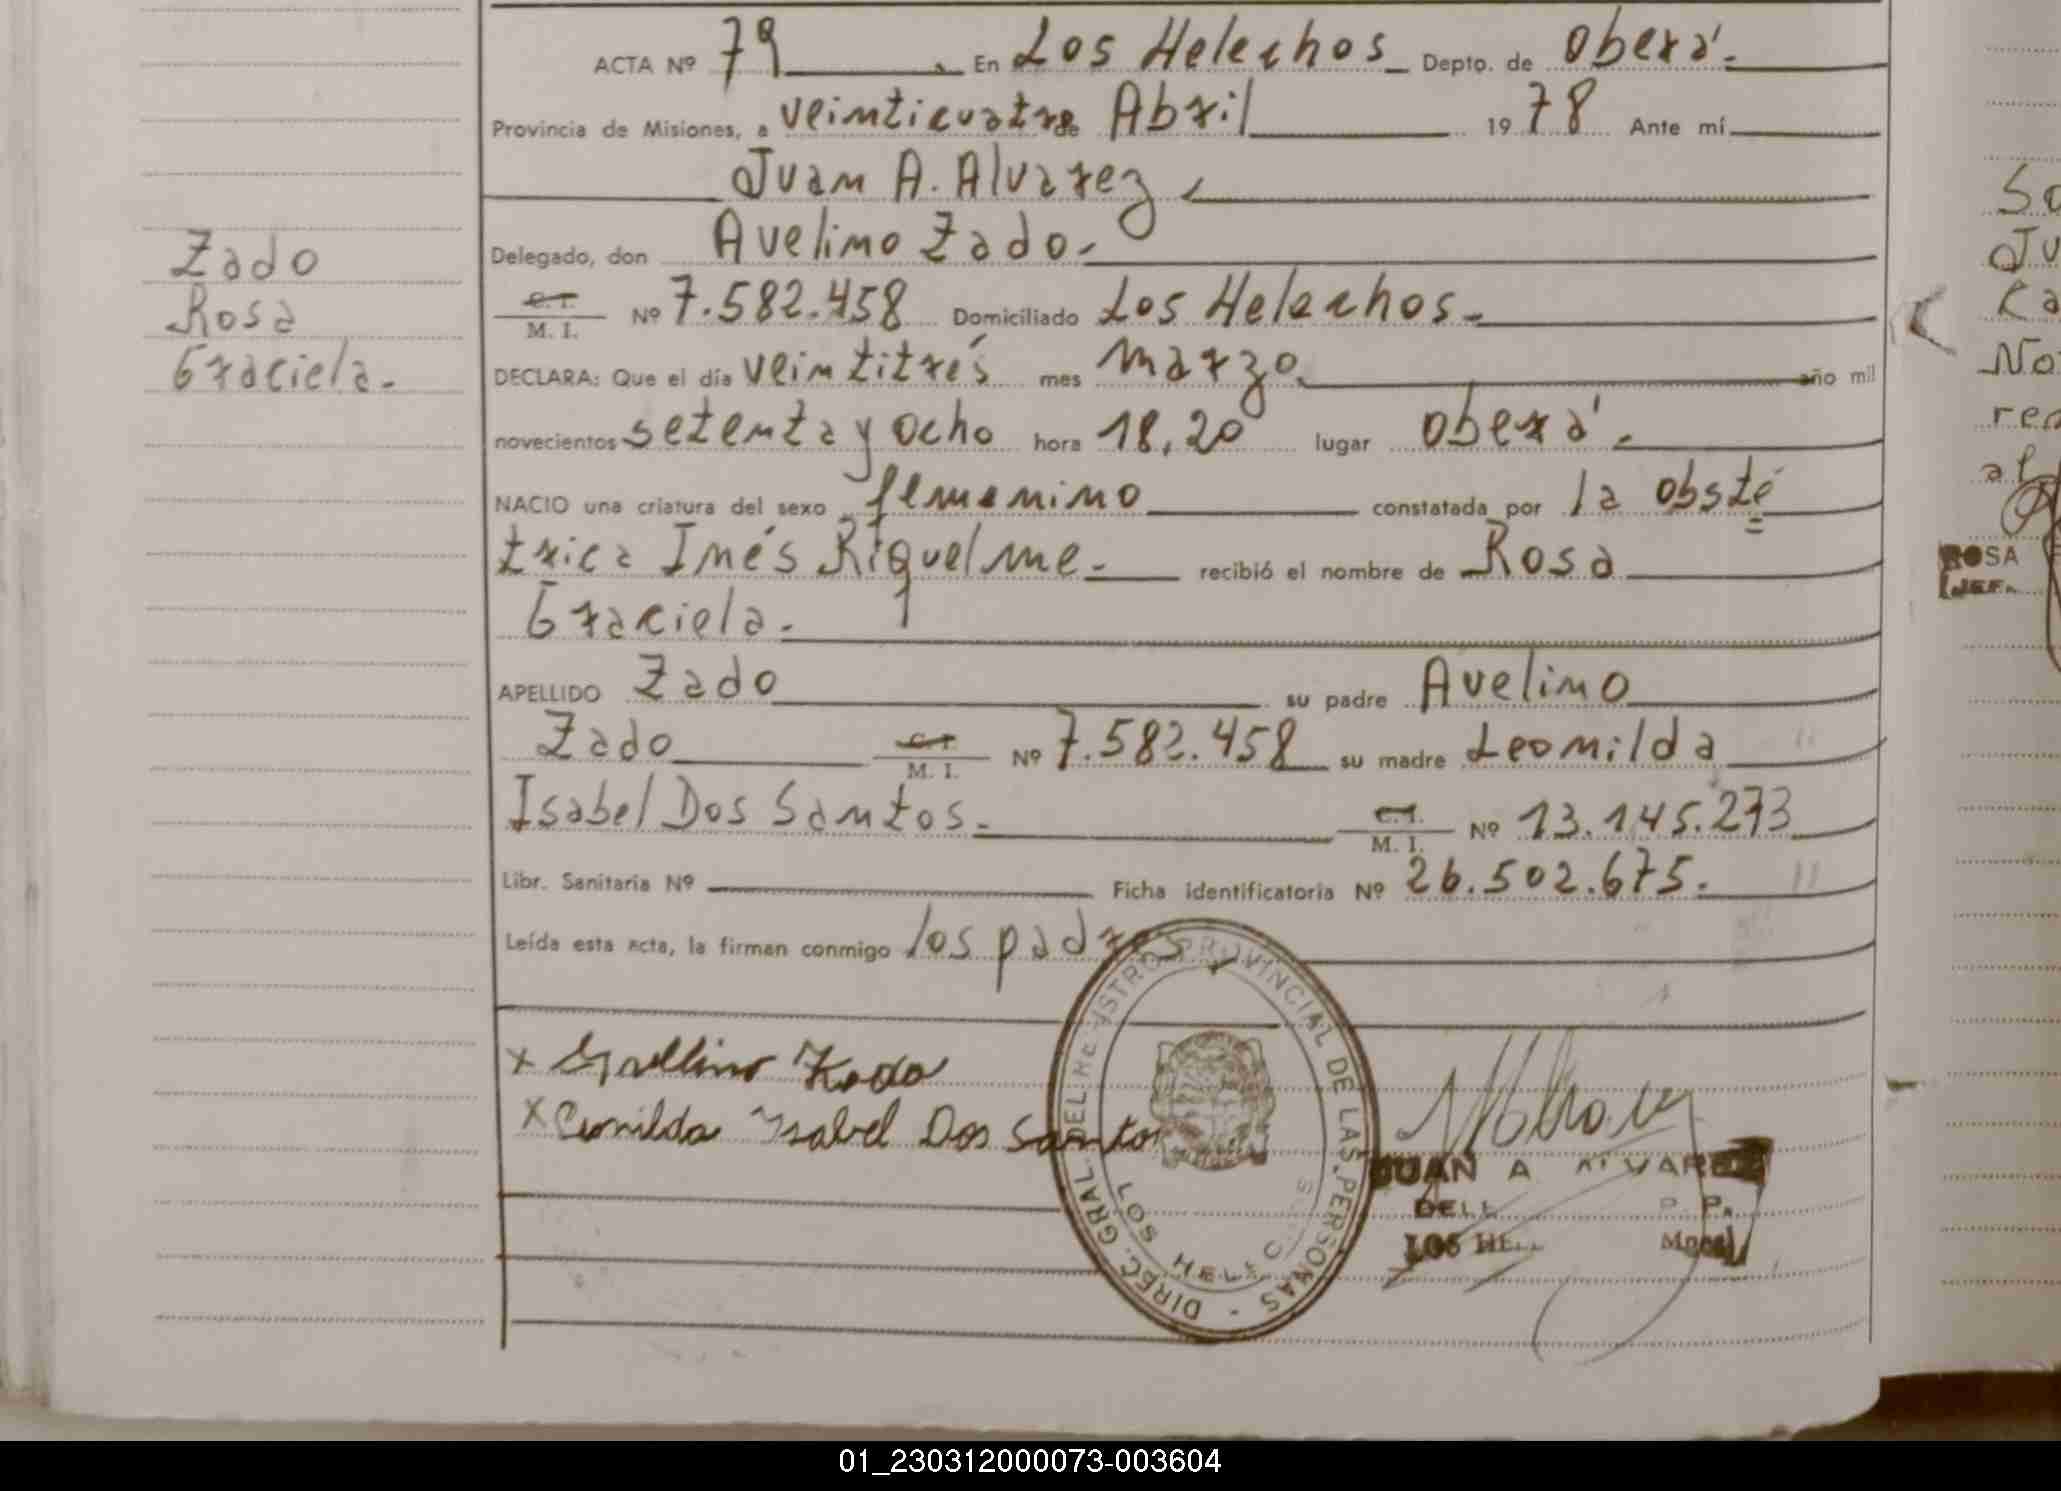 ACTA Nº 79 En Los Helechos Depto. de Oberá.
Provincia de Misiones, a veinticuatro de Abril 1978 Ante mí
Juan A. Alvarez
Delegado, don Avelino Zado.
C. I.
M. I. Nº 7.582.458 Domiciliado Los Helechos.
DECLARA: Que el día veintitrés mes marzo año mil
novecientos setenta y ocho hora 18,20 lugar Oberá.
NACIO una criatura del sexo femenino constatada por la obsté
trica Inés Riquelme. recibió el nombre de Rosa
Graciela.
APELLIDO Zado su padre Avelino
Zado C. I. M. I. Nº 7.582.458 su madre Leonilda
Isabel Dos Santos. C. I. M. I. Nº 13.145.273
Libr. Sanitaria Nº Ficha identificatoria Nº 26.502.675.
Leída esta acta, la firman conmigo los padres
Zado
Rosa
Graciela.
x Avellino Zado
x Isabel Dos Santos
DIREC. GRAL. DEL REGISTRO PROVINCIAL DE LAS PERSONAS
LOS HELECHOS
JUAN A ALVAREZ
LOS HEL
So
Ju
Ca
No
res
al
ROSA
JEF
01_230312000073-003604